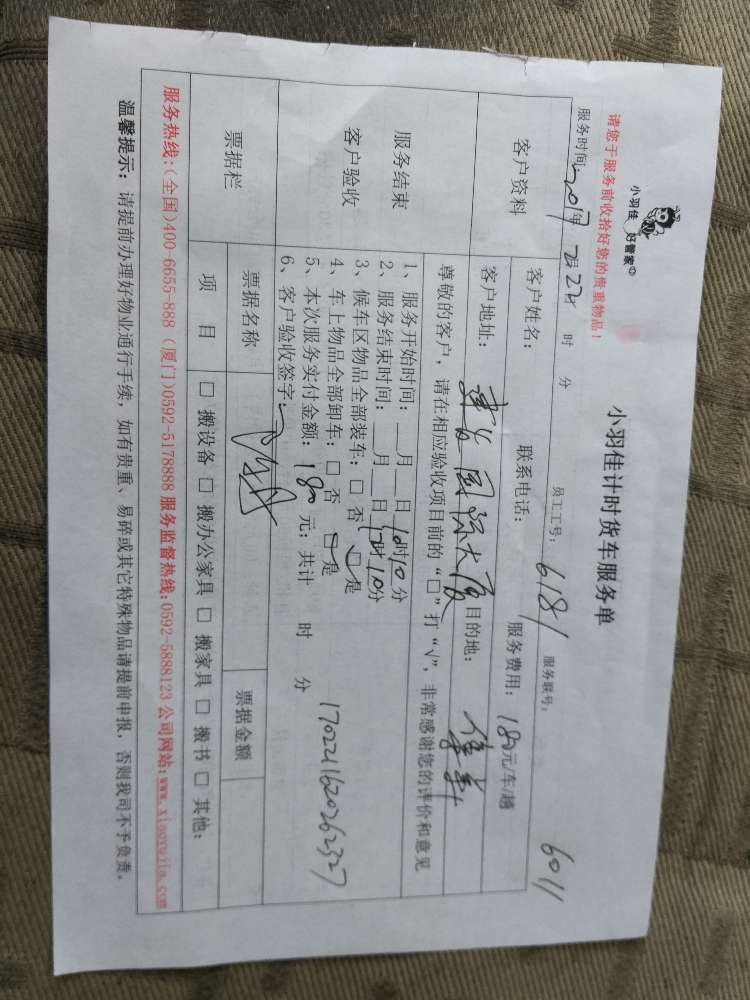 小羽佳 好管家
小羽佳计时货车服务单
请您于服务前收拾好您的贵重物品！
6011
服务时间: 2017年 2月 22日 时 分 员工工号: 6181 服务联号:
客户资料
客户姓名: 联系电话: 服务费用: 180元/车/趟
客户地址: 建设国际大厦 目的地:
服务结束
客户验收
尊敬的客户，请在相应验收项目前的“□”打“√”，非常感谢您的评价和意见
1、服务开始时间: 月 日 10时10分
2、服务结束时间: 月 日 12时10分
3、候车区物品全部装车: □ 否 □ 是
4、车上物品全部卸车: □ 否 □ 是
5、本次服务实付金额: 180 元; 共计 时 分
6、客户验收签字:
1702211620262327
票据栏
票据名称 票据金额
项 目 □ 搬设备 □ 搬办公家具 □ 搬家具 □ 搬书 □ 其他:
服务热线:(全国)400-6655-888 (厦门)0592-5178888 服务监督热线:0592-5888123 公司网站:www.xiaoyujia.com
温馨提示: 请提前办理好物业通行手续，如有贵重、易碎或其它特殊物品请提前申报，否则我司不予负责。